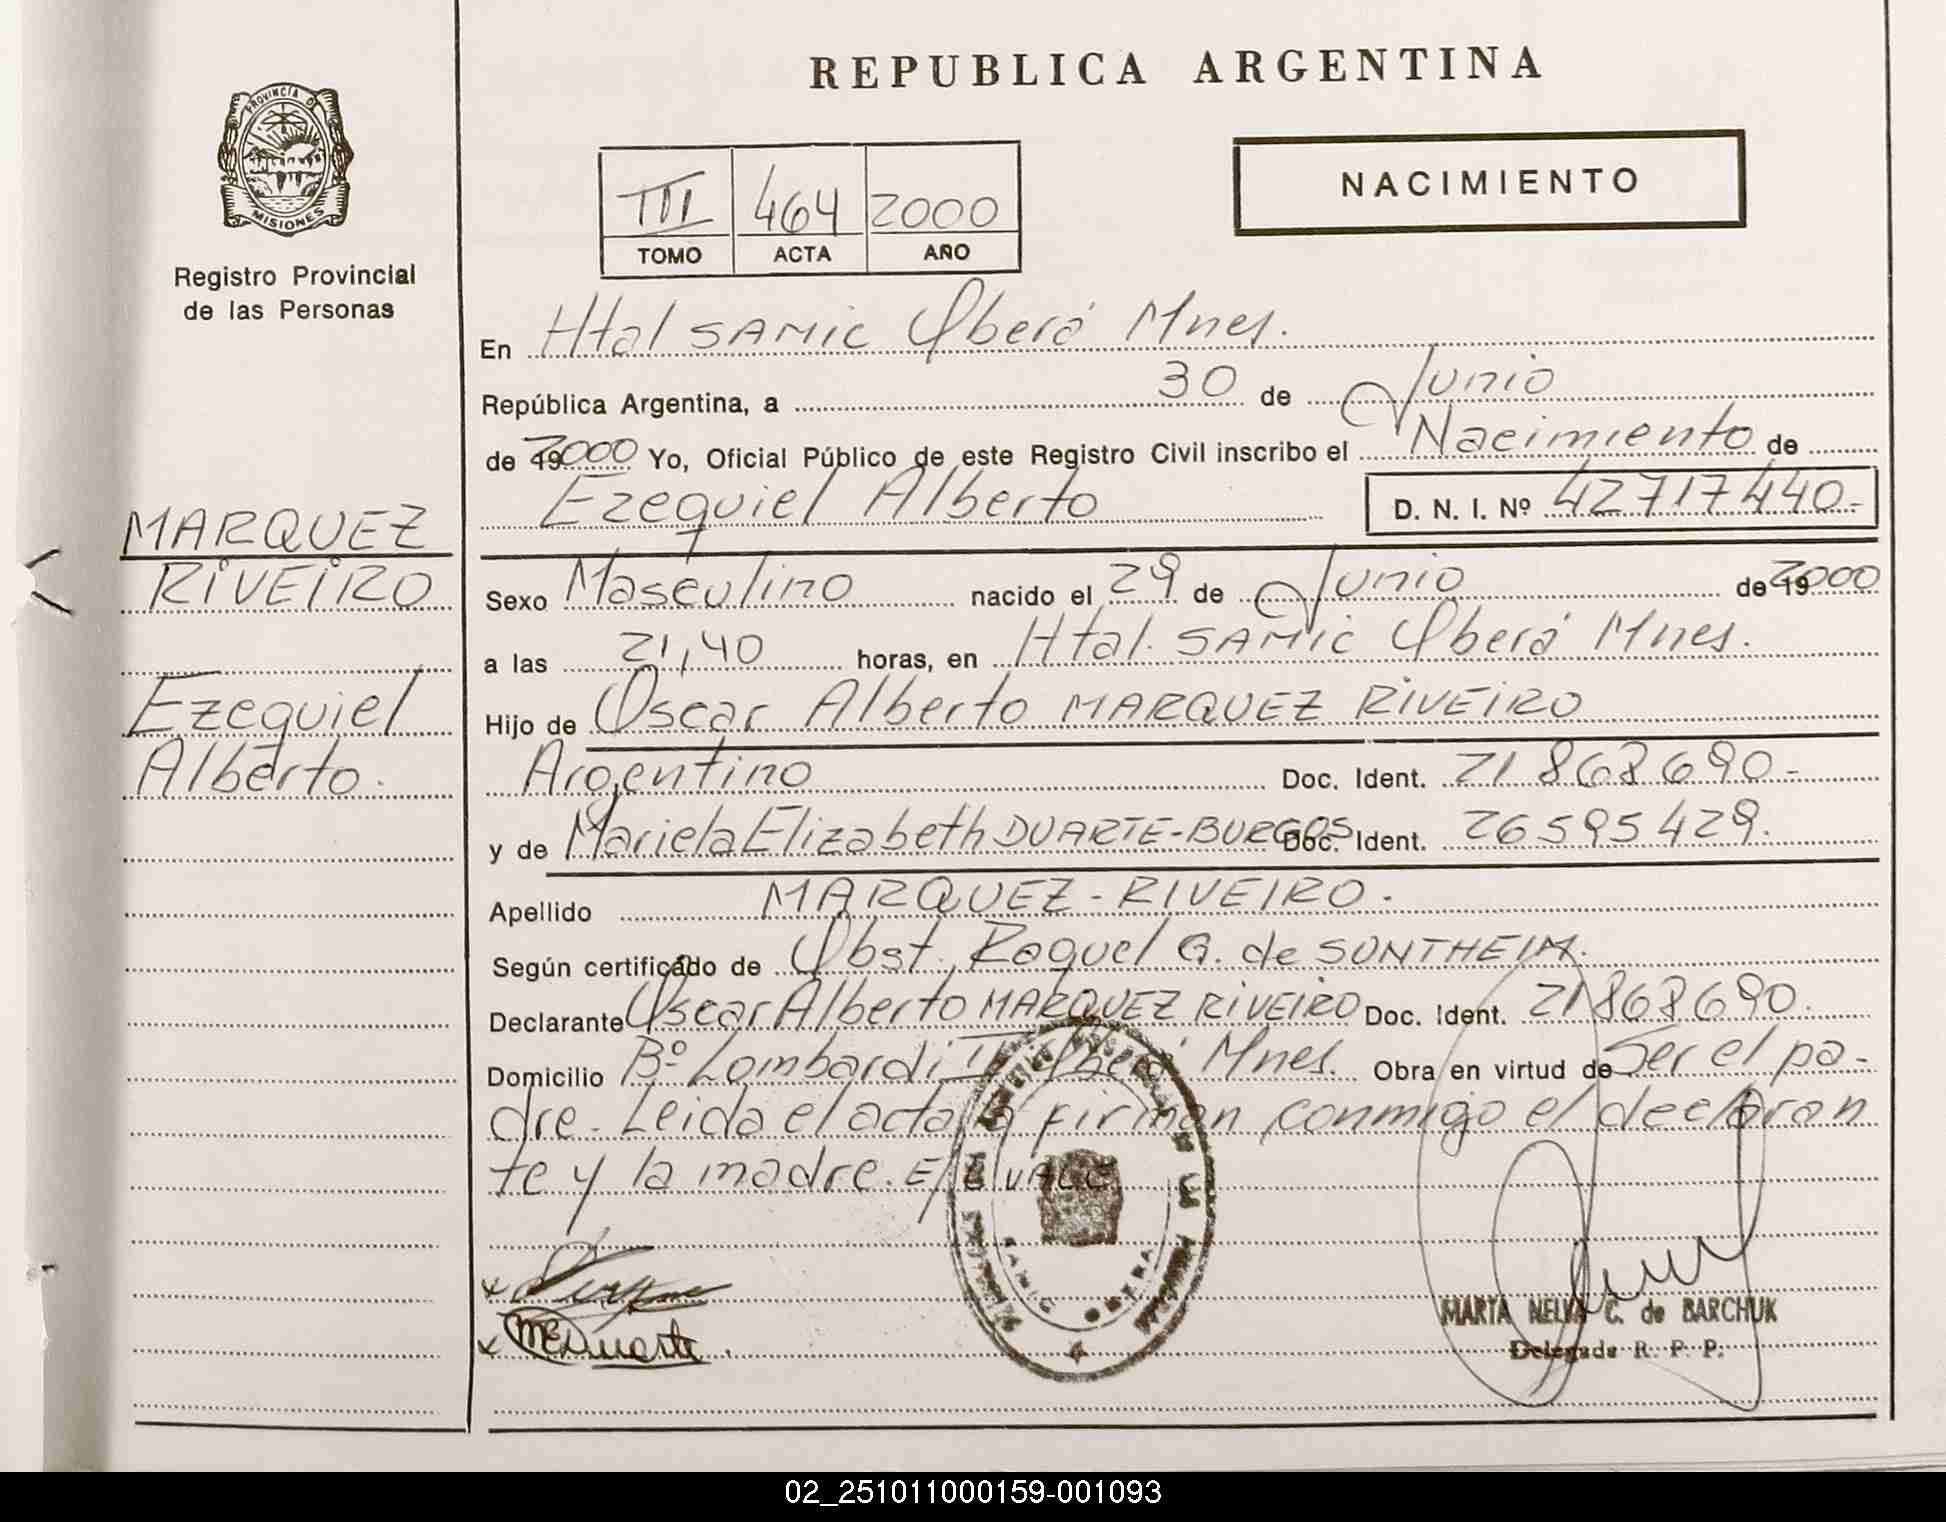 REPUBLICA ARGENTINA
PROVINCIA D
MISIONES
Registro Provincial
de las Personas
NACIMIENTO
III 464 2000
TOMO ACTA AÑO
En Htal SAMIC Oberá Mnes.
República Argentina, a 30 de Junio
de 2000 Yo, Oficial Público de este Registro Civil inscribo el Nacimiento de
Ezequiel Alberto D. N. I. Nº 42717440.-
MARQUEZ
RIVEIRO
Ezequiel
Alberto.
Sexo Masculino nacido el 29 de Junio de 2000
a las 21,40 horas, en Htal. SAMIC Oberá Mnes.
Hijo de Oscar Alberto MARQUEZ RIVEIRO
Argentino Doc. Ident. 21868690-
y de Mariela Elizabeth DUARTE-BURGOS Doc. Ident. 26595429.
Apellido MARQUEZ-RIVEIRO.
Según certificado de Obst. Raquel G. de SONTHEIM.
Declarante Oscar Alberto MARQUEZ RIVEIRO Doc. Ident. 21868690.
Domicilio Bº Lombardi II Oberá Mnes. Obra en virtud de Ser el pa-
dre. Leida el acta la firman conmigo el declaran
te y la madre. E/L VALE
SAMIC OBERA
MEDuarte
MARTA NELVA C. de BARCHUK
Delegada R. P. P.
02_251011000159-001093